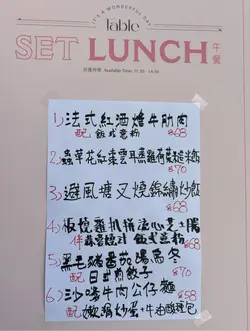 IT'S A WONDERFUL DAY
Table
SET LUNCH 午餐
供應時間 Available Time: 11:30 - 14:30
1) 法式紅酒燴牛肋肉
配 飯或意粉 $68
2) 蟲草花紅棗雲耳蒸雞荷葉糙米飯
$70
3) 避風塘叉燒錦繡炒飯
$68
4) 板燒雞扒拼流心芝士腸
伴蒜香燴汁 飯或意粉 $68
5) 黑毛豬番茄湯烏冬
配 日式煎餃子 $70
6) 三沙嗲牛肉公仔麵 $58
配 嫩滑炒蛋+牛油餐包